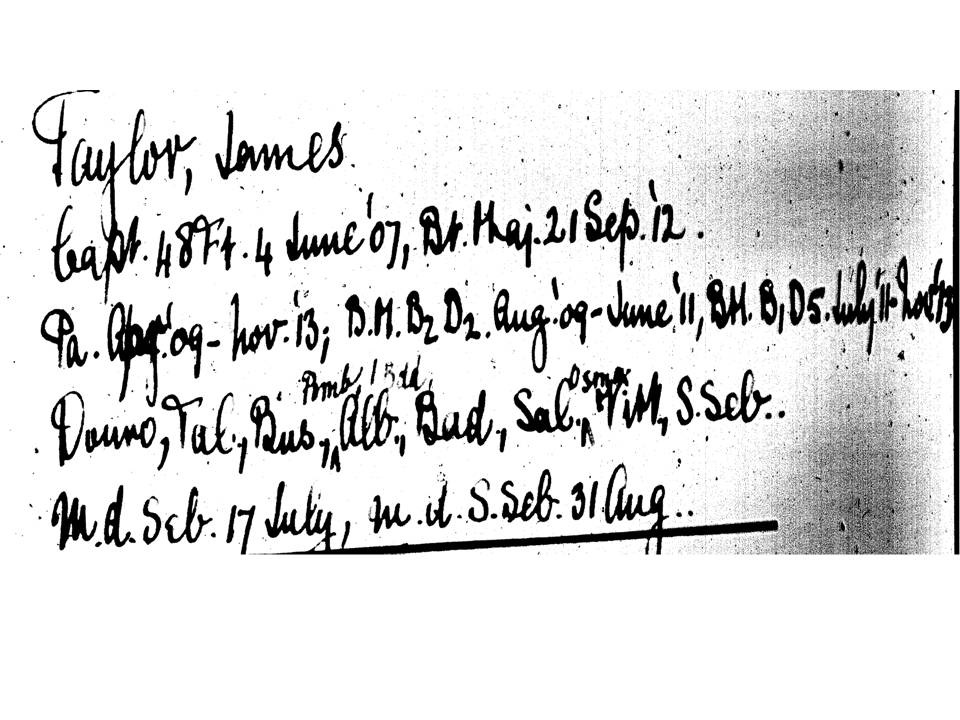 Taylor, James.
Capt. 48 Ft. 4 June '07, Bt. Maj. 21 Sep. '12.
Pa. Apr. '09 - Nov. '13; B.M. B2 D2. Aug. '09 - June '11, B.M. B1 D5. July '11 - Nov '13
Pomb, 1 Bdd, Osma
Douro, Tal., Bus, Alb., Bad, Sal., Vit, S. Seb..
M.d. Seb. 17 July, m.d. S. Seb. 31 Aug..